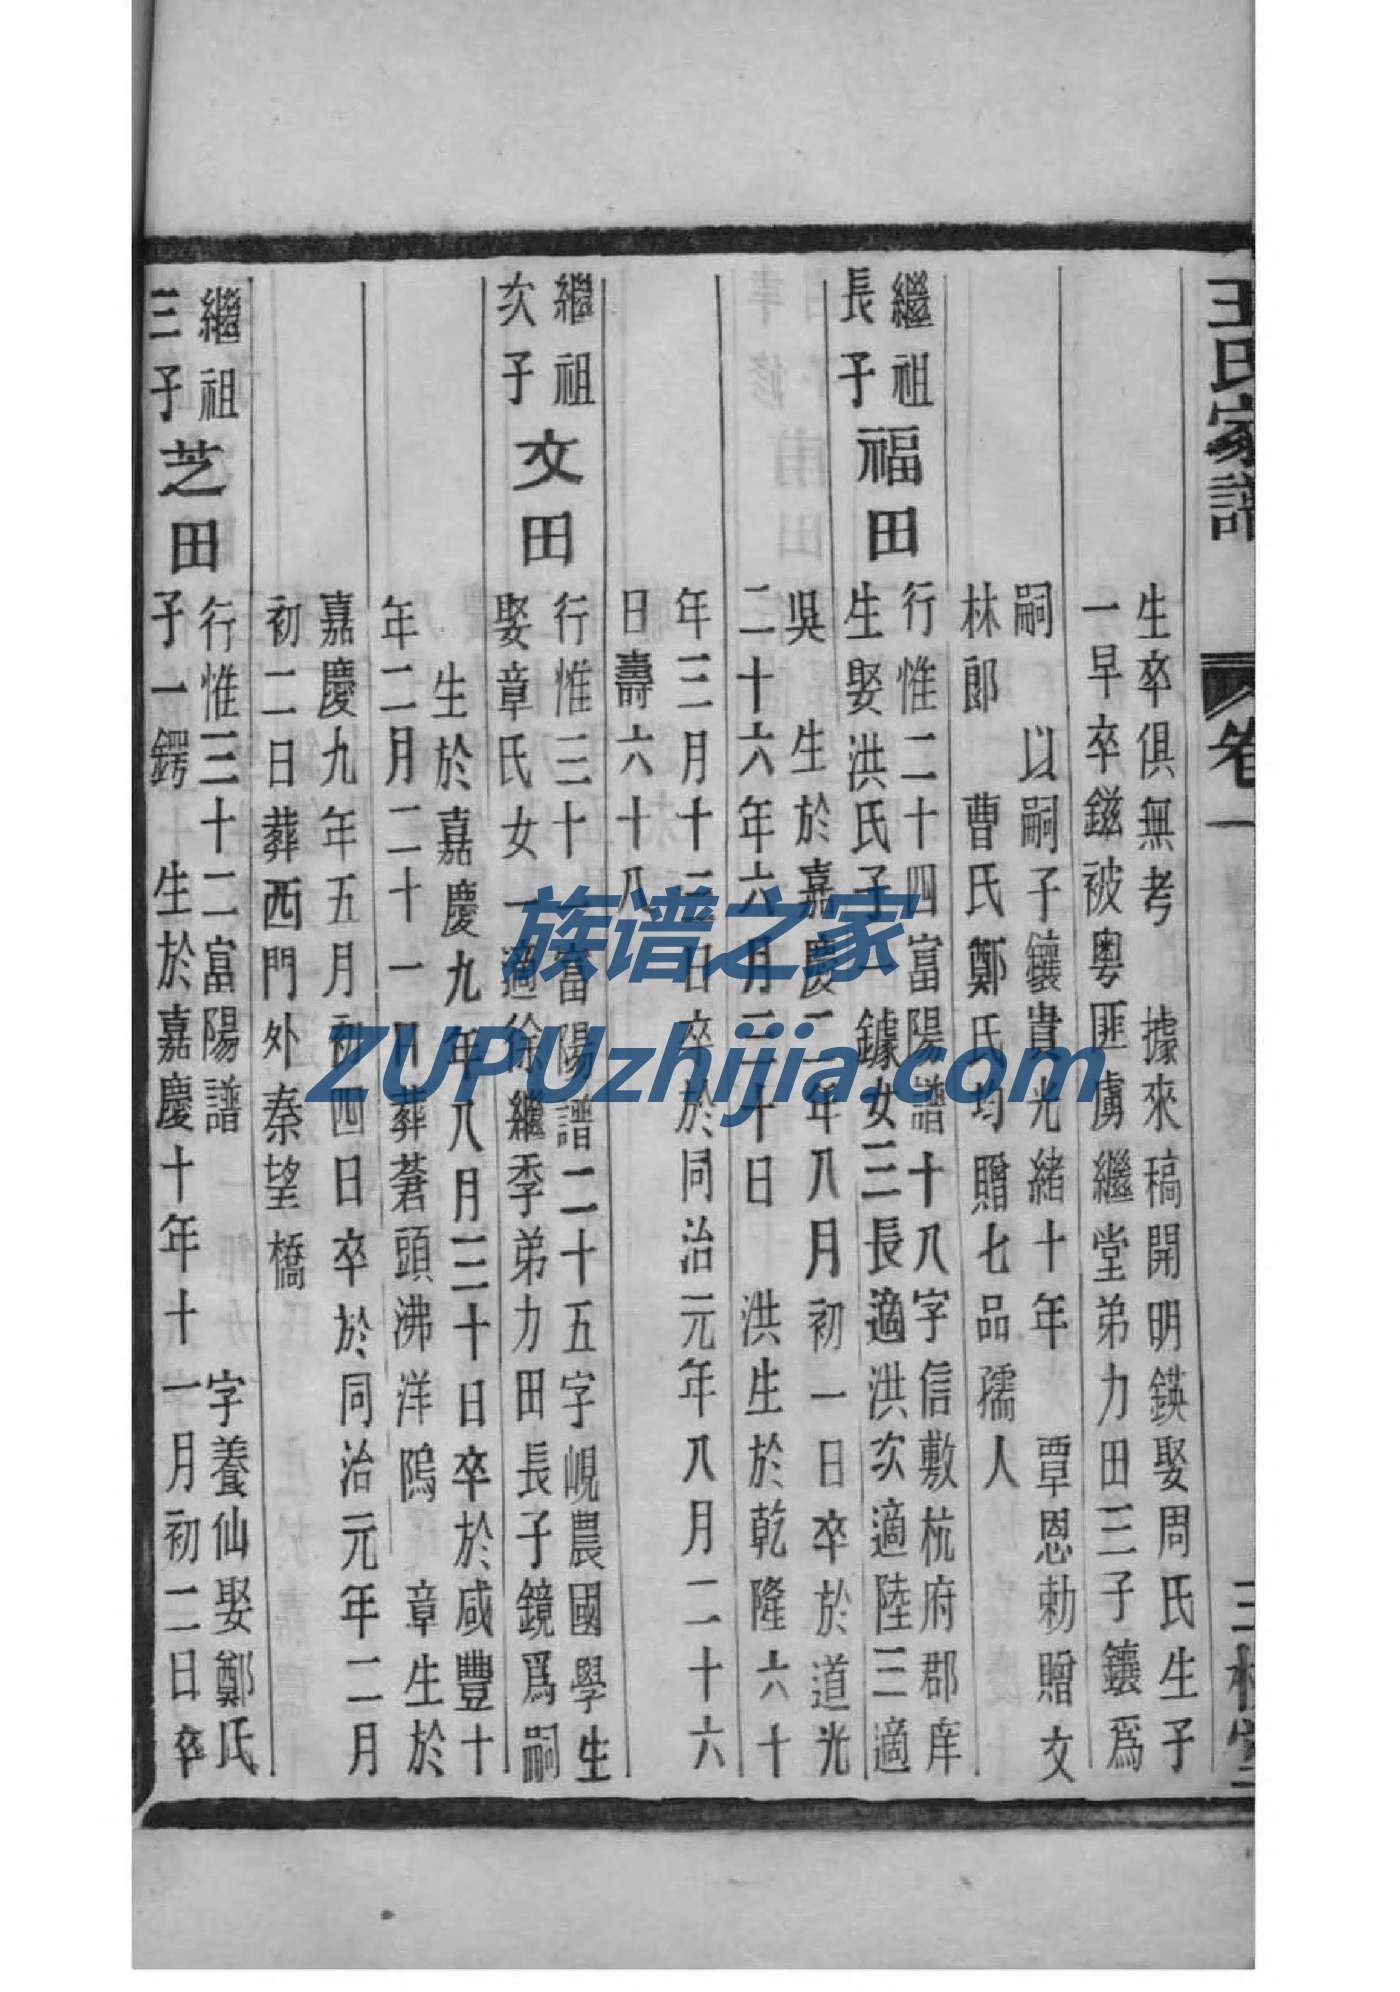 王氏家譜
卷一
生卒俱無考　據來稿開明鍈娶周氏生子
一早卒鎡被粵匪虜繼堂弟力田三子鑲為
嗣　以嗣子鑲貴光緒十年　覃恩勅贈文
林郎　曹氏鄭氏均贈七品孺人
繼祖
長子
福田
行惟二十四富陽譜十八字信敷杭府郡庠
生娶洪氏子一鐻女三長適洪次適陸三適
吳　生於嘉慶二年八月初一日卒於道光
二十六年六月三十日　洪生於乾隆六十
年三月十三日卒於同治元年八月二十六
日壽六十八
繼祖
次子
文田
行惟三十一富陽譜二十五字峴農國學生
娶章氏女一適徐繼季弟力田長子鏡爲嗣
生於嘉慶九年八月三十日卒於咸豐十
年二月二十一日葬荖頭沸洋隖　章生於
嘉慶九年五月初四日卒於同治元年二月
初二日葬西門外秦望橋
繼祖
三子
芝田
行惟三十二富陽譜　字養仙娶鄭氏
子一鍔　生於嘉慶十年十一月初二日卒
族谱之家
ZUPUzhijia.com